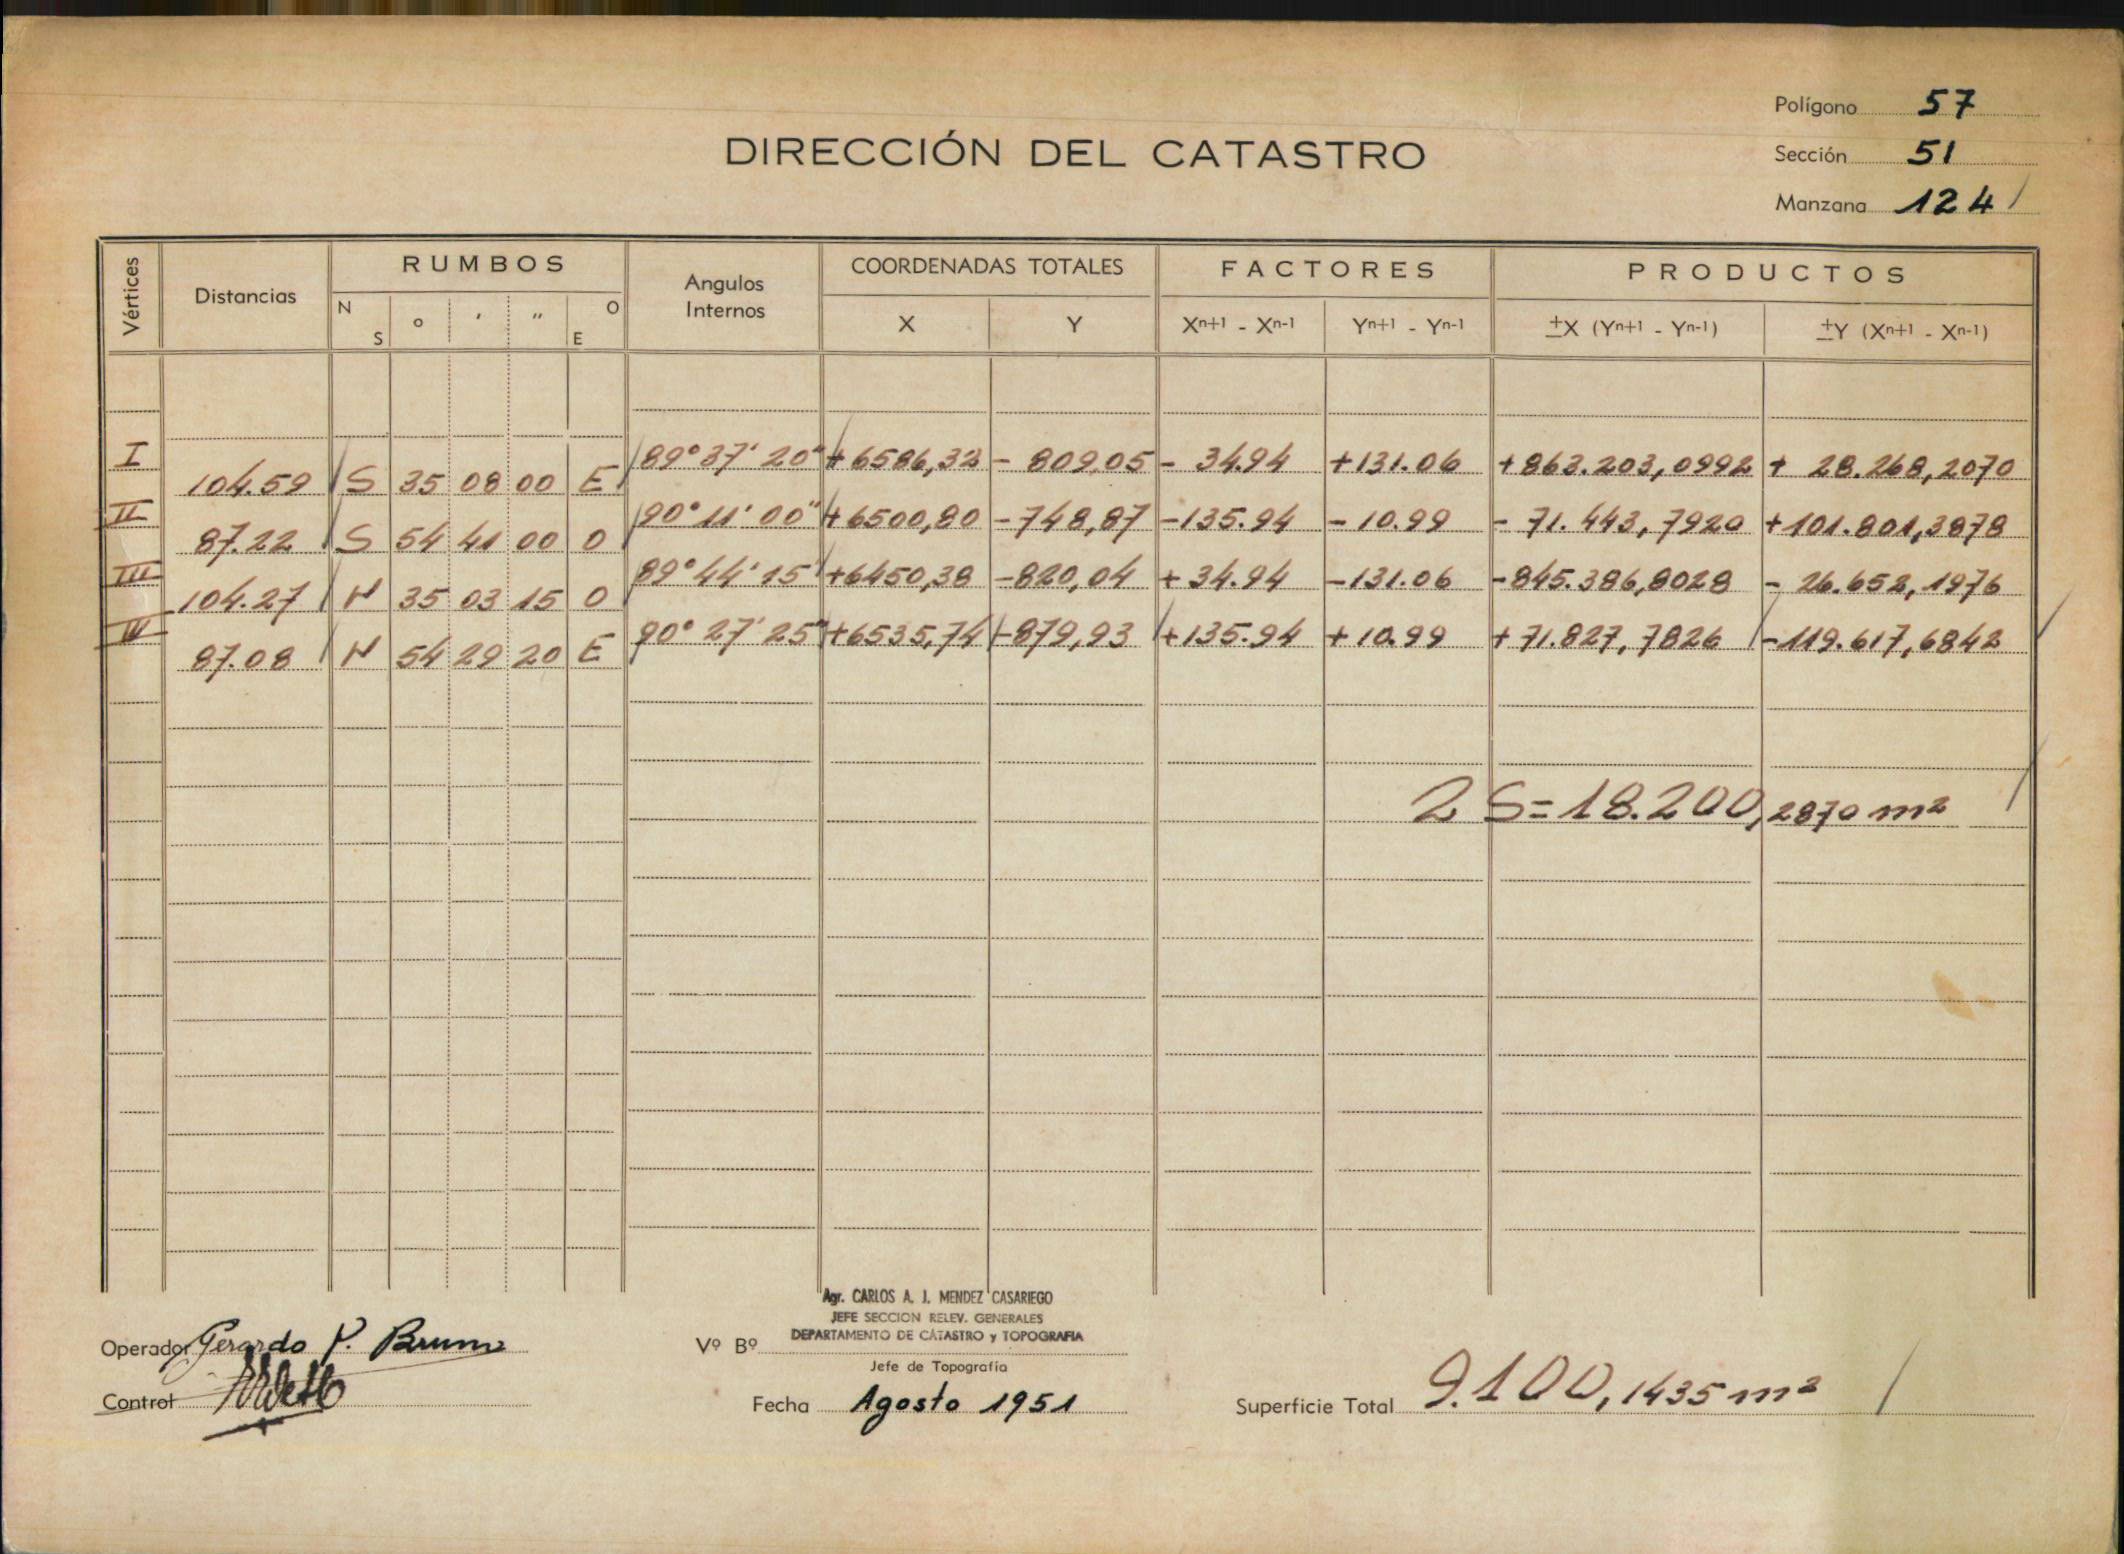 Polígono 57
DIRECCIÓN DEL CATASTRO
Sección 51
Manzana 124
Vértices Distancias RUMBOS Angulos Internos COORDENADAS TOTALES FACTORES PRODUCTOS
N S o ' " O E X Y Xn+1 - Xn-1 Yn+1 - Yn-1 ±X (Yn+1 - Yn-1) ±Y (Xn+1 - Xn-1)
I 89° 37' 20" +6586,32 - 809,05 - 34.94 +131.06 +863.203,0992 + 28.268,2070
104.59 S 35 08 00 E
II 90° 11' 00" +6500,80 -748,87 -135.94 - 10.99 - 71.443,7920 +101.801,3878
87.22 S 54 41 00 O
III 89° 44' 15" +6450,38 -820,04 + 34.94 -131.06 -845.386,8028 - 26.652,1976
104.27 N 35 03 15 O
IV 90° 27' 25" +6535,74 -879,93 +135.94 +10.99 +71.827,7826 -119.617,6842
87.08 N 54 29 20 E
2 S = 18.200,2870 m²
Agr. CARLOS A. J. MENDEZ CASARIEGO
JEFE SECCION RELEV. GENERALES
DEPARTAMENTO DE CATASTRO y TOPOGRAFIA
Operador Gerardo P. Bruno Vº Bº
Jefe de Topografía
Control Fecha Agosto 1951 Superficie Total 9.100,1435 m²